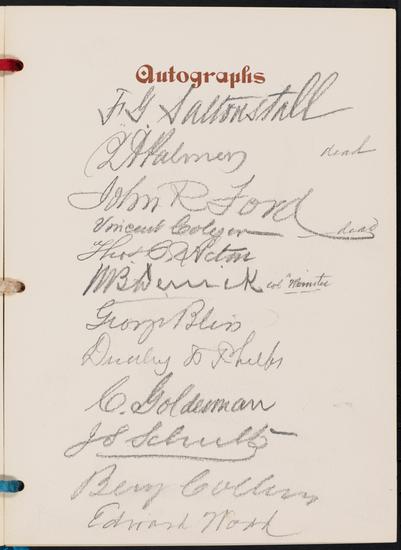 Autographs
F. G. Saltonstall
Palmer dead
John R Ford
Vincent Colyer dead
Thos C Acton
W B Derrick col "Minister
George Bliss
Dudley Phelps
C. Goldeman
J S Schultz
Benj Collins
Edward